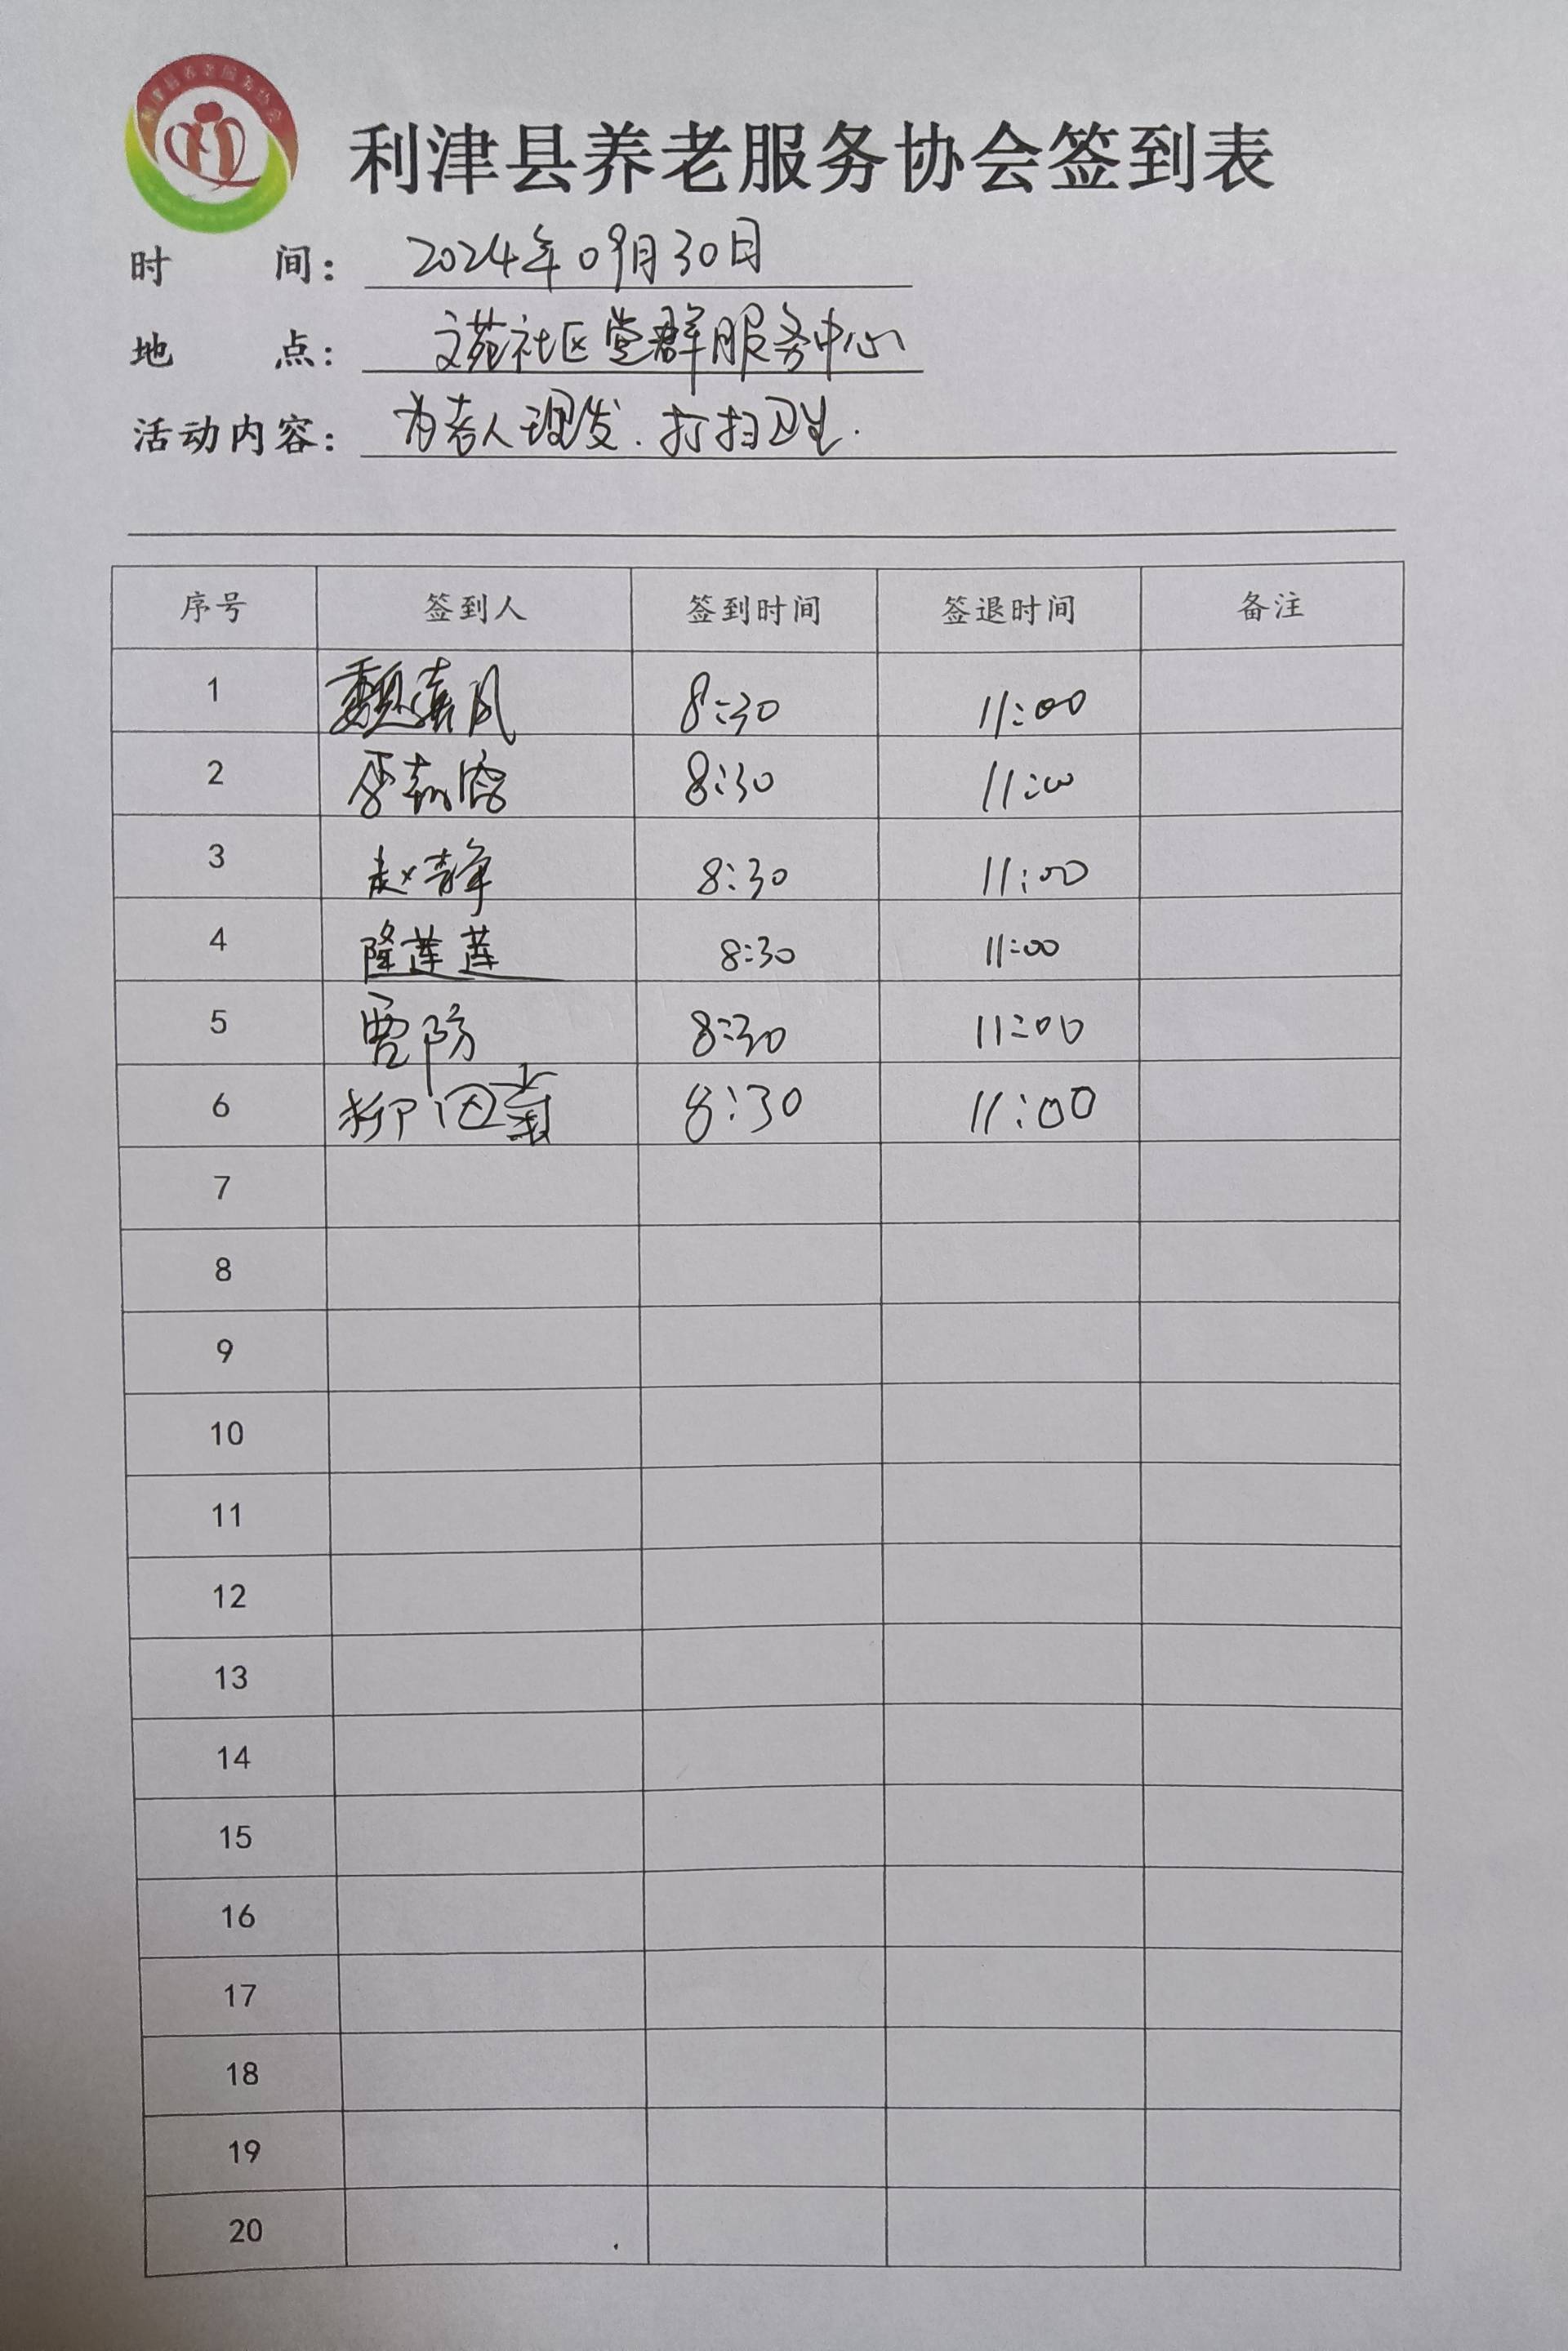 利津县养老服务协会
利津县养老服务协会签到表
时 间： 2024年09月30日
地 点： 文苑社区党群服务中心
活动内容： 为老人理发.打扫卫生.
序号 签到人 签到时间 签退时间 备注
1 魏 8:30 11:00
2 8:30 11:00
3 赵静 8:30 11:00
4 隆莲莲 8:30 11:00
5 贾防 8:30 11:00
6 柳 8:30 11:00
7
8
9
10
11
12
13
14
15
16
17
18
19
20